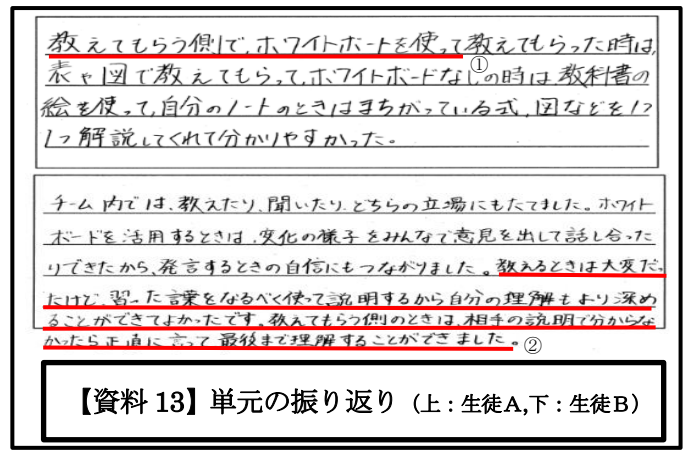 教えてもらう側で、ホワイトボートを使って教えてもらった時は、
①
表や図で教えてもらって、ホワイトボードなしの時は教科書の
絵を使って、自分のノートのときはまちがっている式、図などを1つ
1つ解説してくれて分かりやすかった。
チーム内では、教えたり、聞いたり、どちらの立場にもたてました。ホワイト
ボードを活用するときは、変化の様子をみんなで意見を出して話し合った
りできたから、発言するときの自信にもつながりました。教えるときは大変だっ
たけど、習った言葉をなるべく使って説明するから自分の理解もより深め
ることができてよかったです。教えてもらう側のときは、相手の説明で分からな
かったら正直に言って最後まで理解することができました。②
【資料 13】単元の振り返り（上：生徒A,下：生徒B）